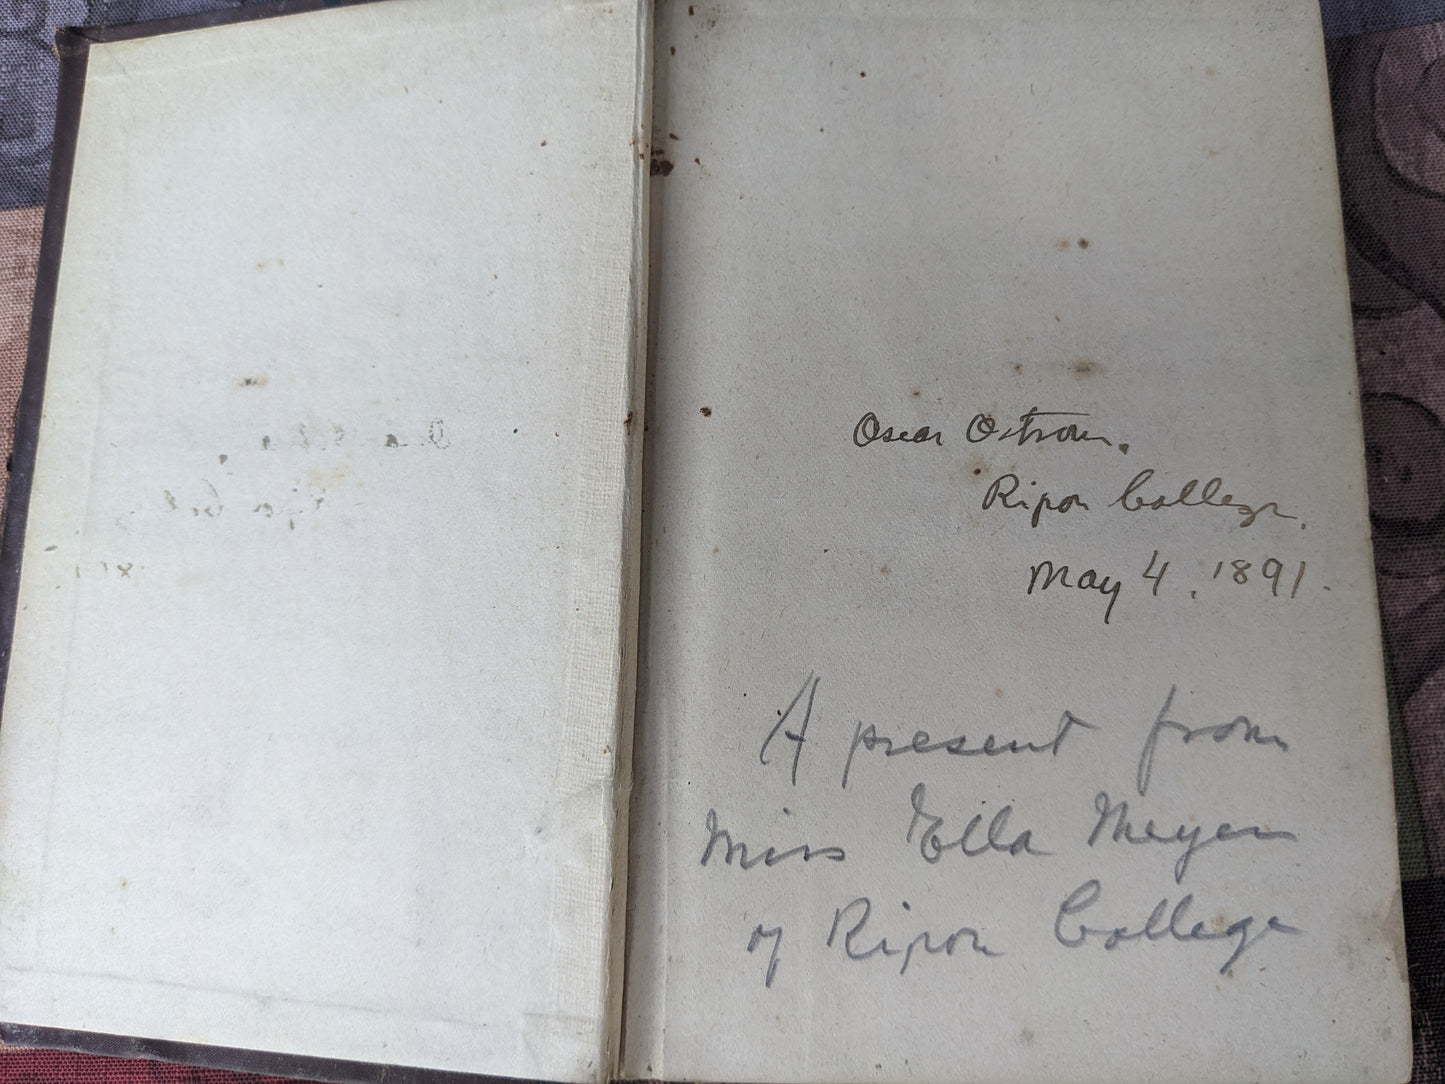 Oscar Ostrom.
Ripon College.
May 4, 1891.
A present from
Miss Ella Meyer
of Ripon College